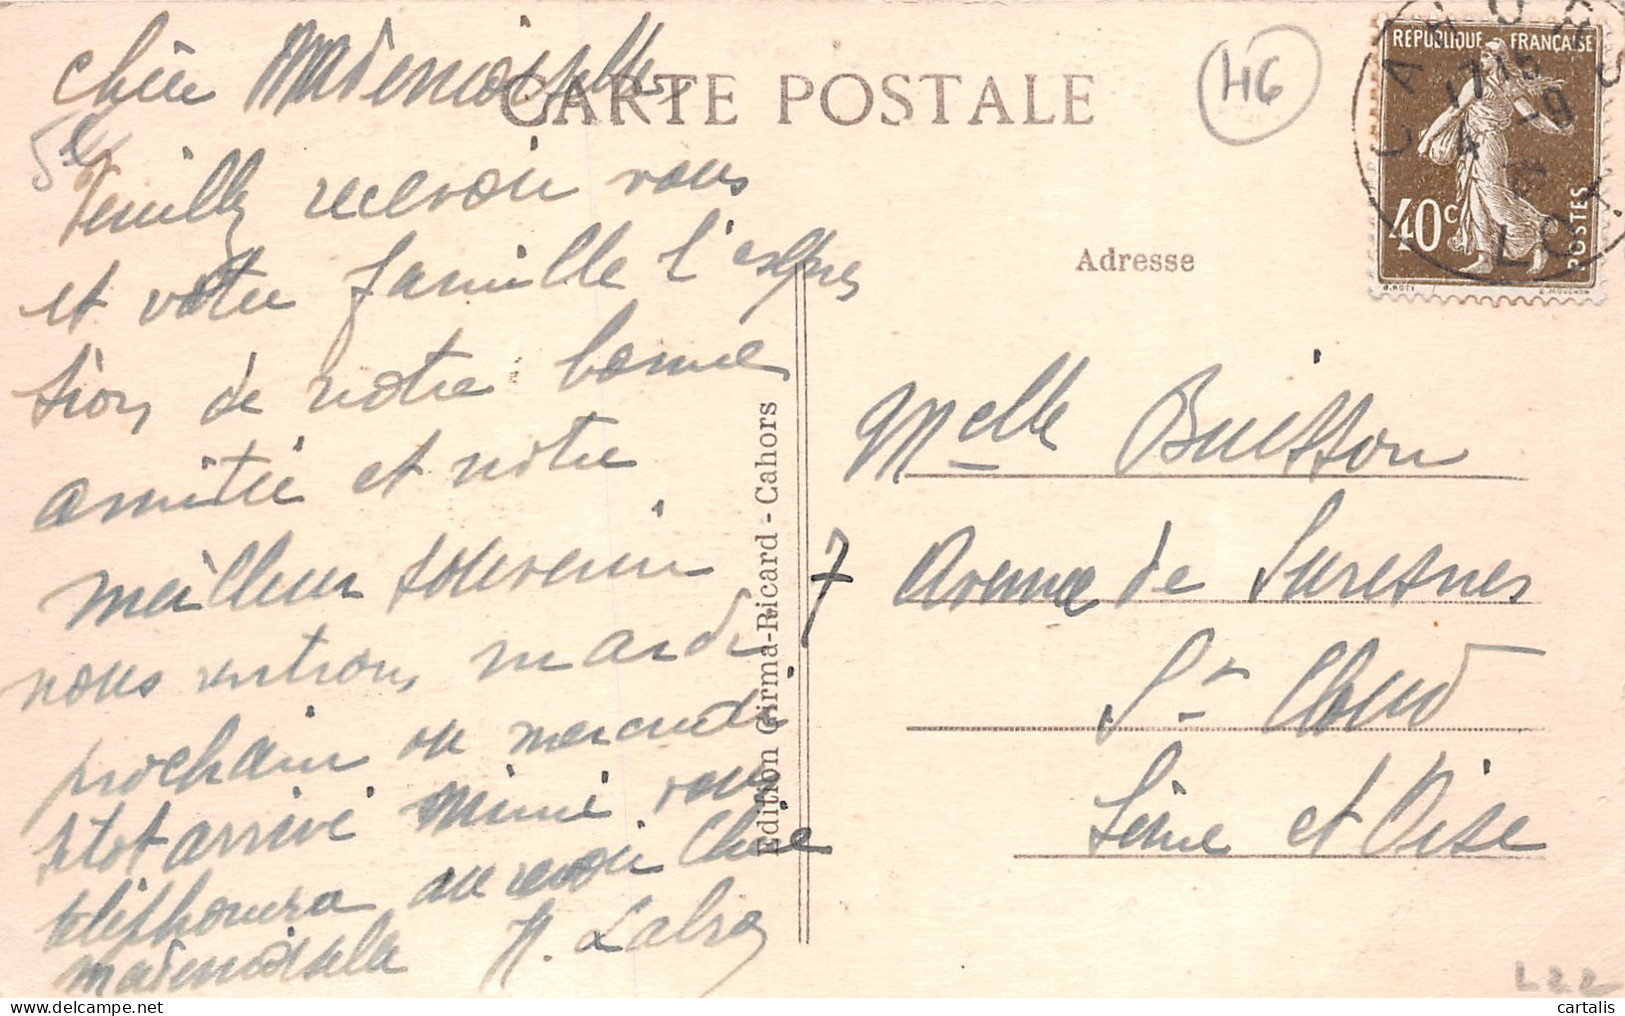 CARTE POSTALE
46
RÉPUBLIQUE FRANÇAISE
40c
POSTES
CAHORS
17 15
4 -9
LOT
Adresse
Chère Mademoiselle,
Veuillez recevoir vous
et votre famille l'expres
sion de notre bonne
amitié et notre
meilleur souvenir
nous rentrons mardi
prochain ou mercredi
sitot arrivé Mimi vous
téléphonera au revoir Chère
mademoiselle
Edition Girma-Ricard - Cahors
Melle Buisson
7 Avenue de Suresnes
St Cloud
Seine et Oise
L22
cartalis